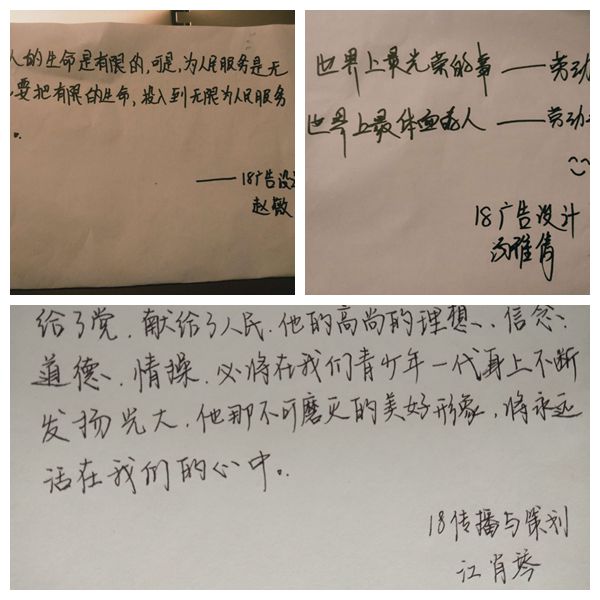 人的生命是有限的,可是,为人民服务是无
要把有限的生命,投入到无限为人民服务
。
——18广告设
赵敏
世界上最光荣的事——劳动
世界上最体面的人——劳动
18广告设计
汤雅倩
给了党、献给了人民.他的高尚的理想、信念、
道德、情操、必将在我们青少年一代身上不断
发扬光大.他那不可磨灭的美好形象,将永远
活在我们的心中。
18传播与策划
江肖琴